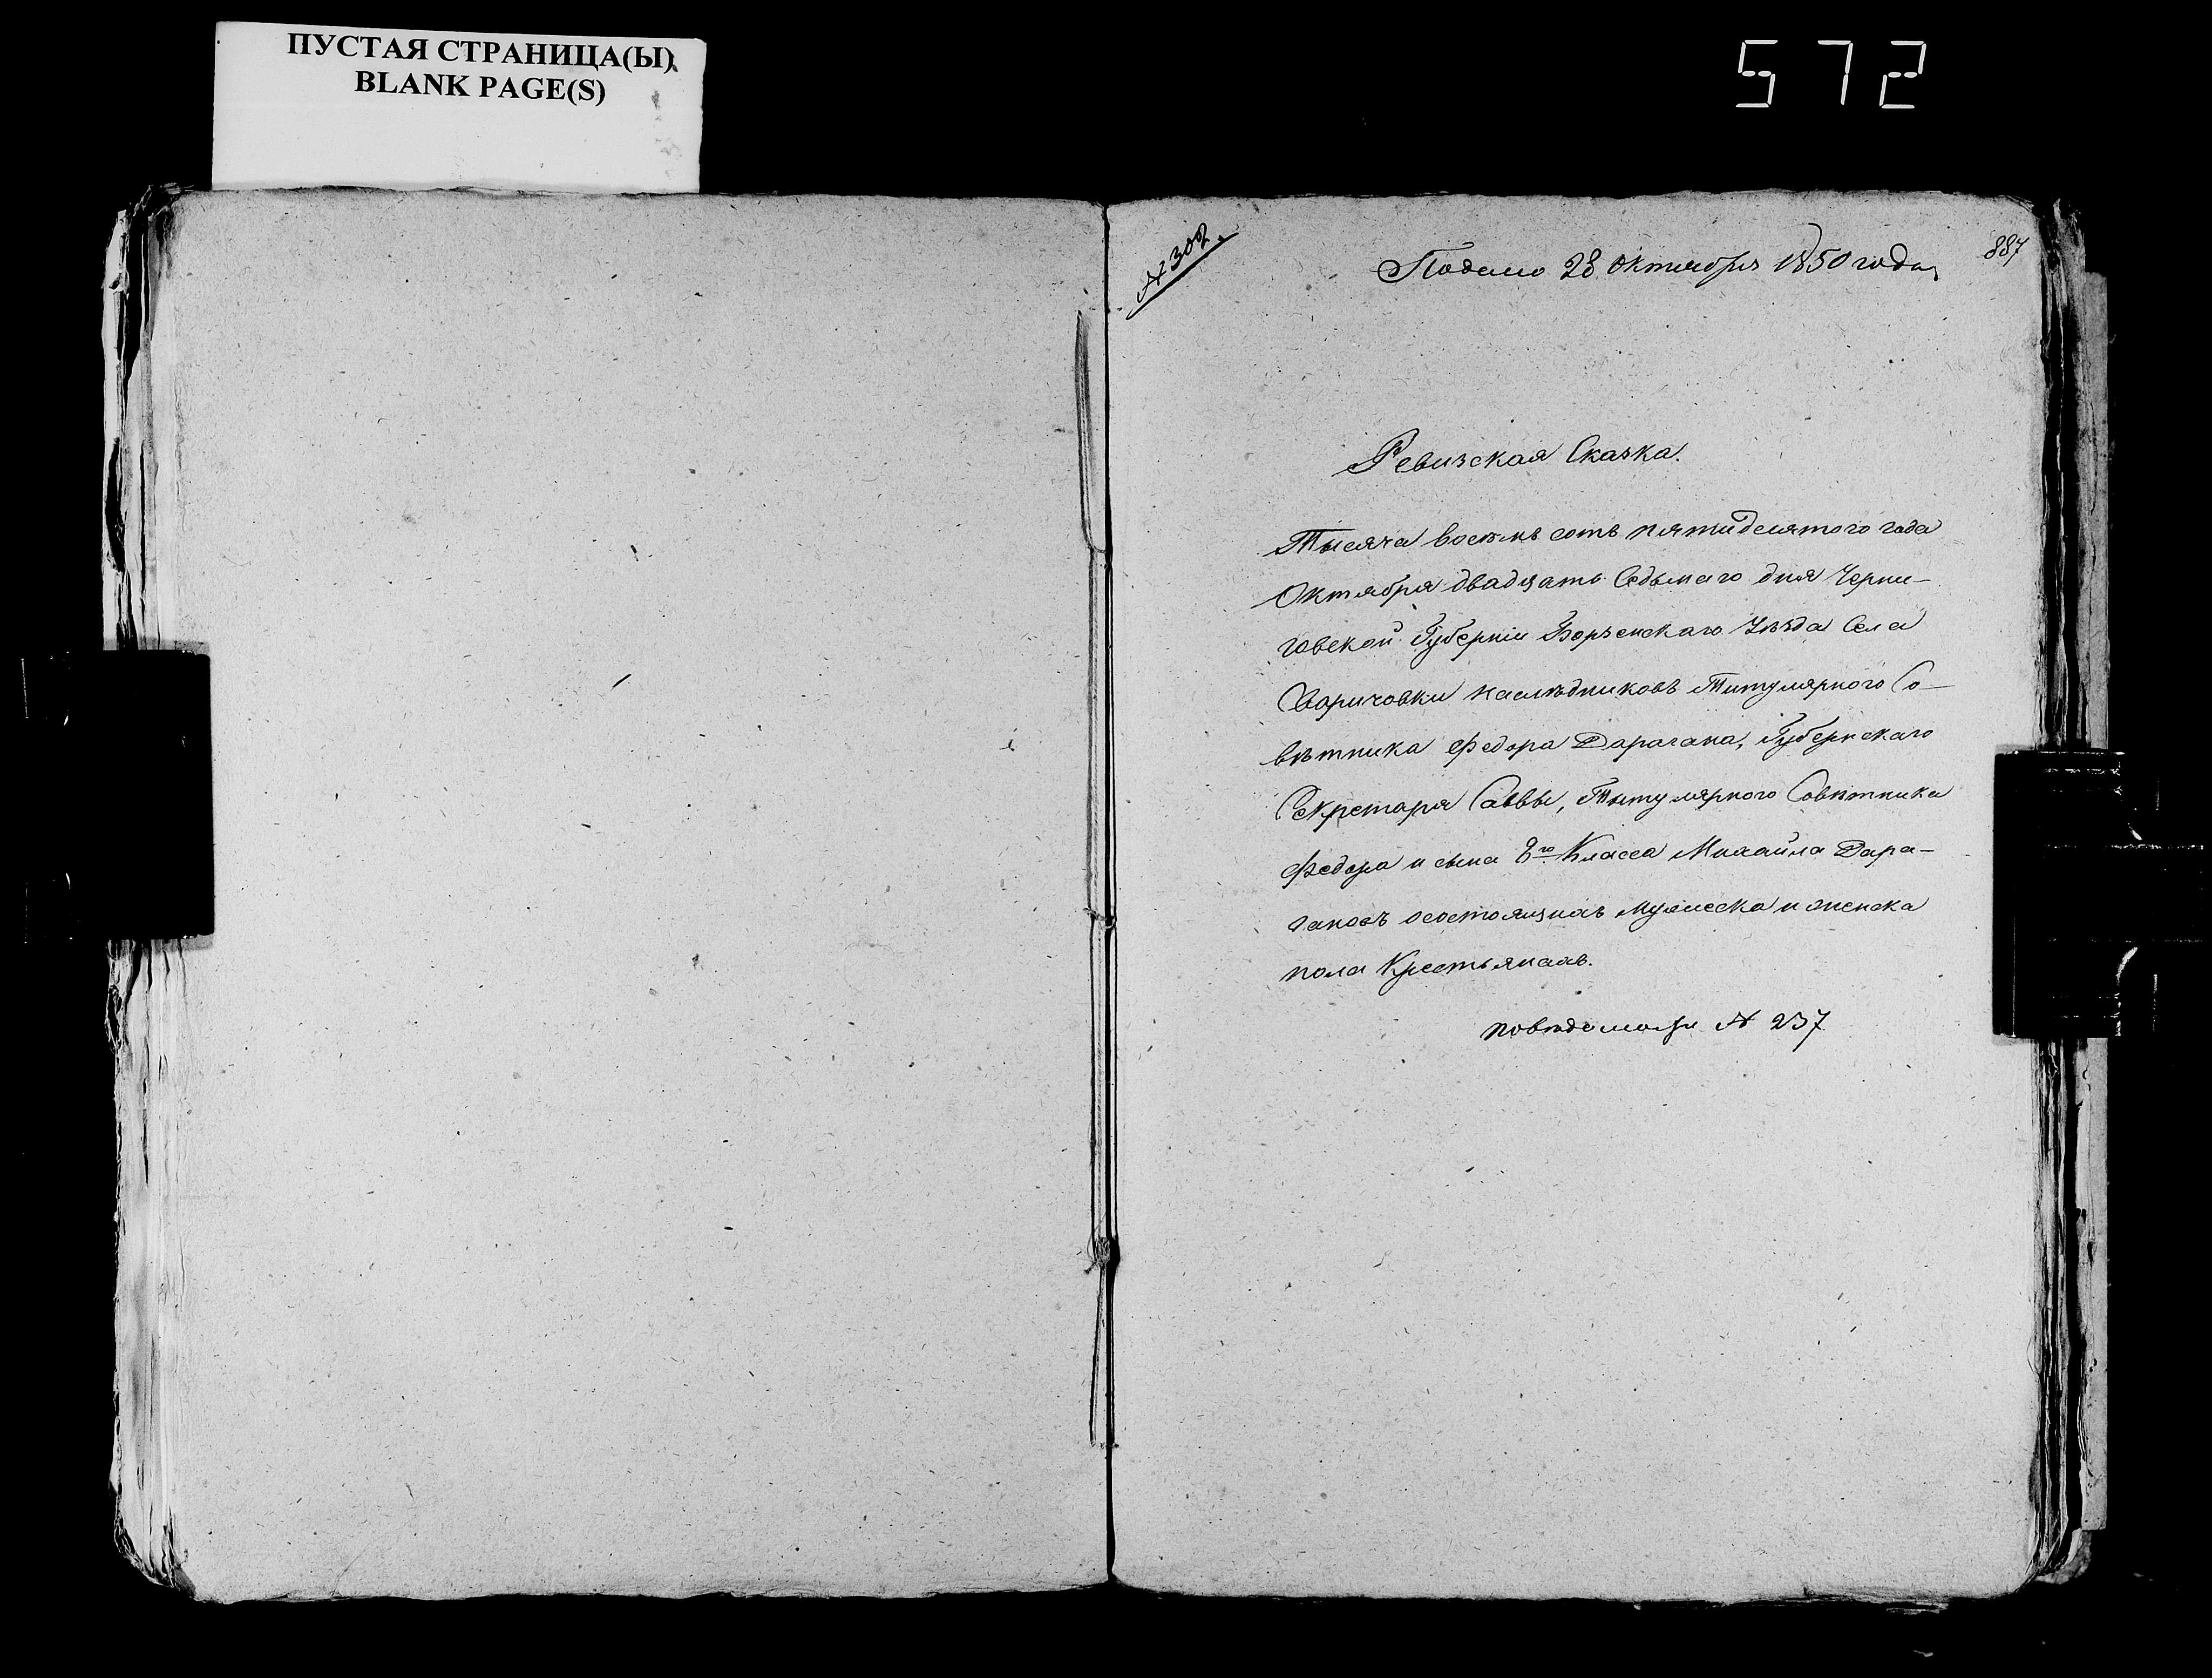 ПУСТАЯ СТРАНИЦА(Ы)
BLANK PAGE(S)
572
№ 302.
887
Подано 28 Октября 1850 года
Ревизская Сказка.
Тысяча восемь сотъ пятидесятого года
Октября двадцать Седьмаго дня Черни-
говской Губерніи Борзенскаго Уѣзда Села
Сваричовки наслѣдниковъ Титулярного Со-
вѣтника Федора Дарагана, Губернскаго
Секретаря Саввы, Титулярного Совѣтника
Федора и сына 8го Класса Михайла Дара-
гановъ осостоящихъ мужеска и женска
пола Крестьянахъ.
повѣдомости № 237